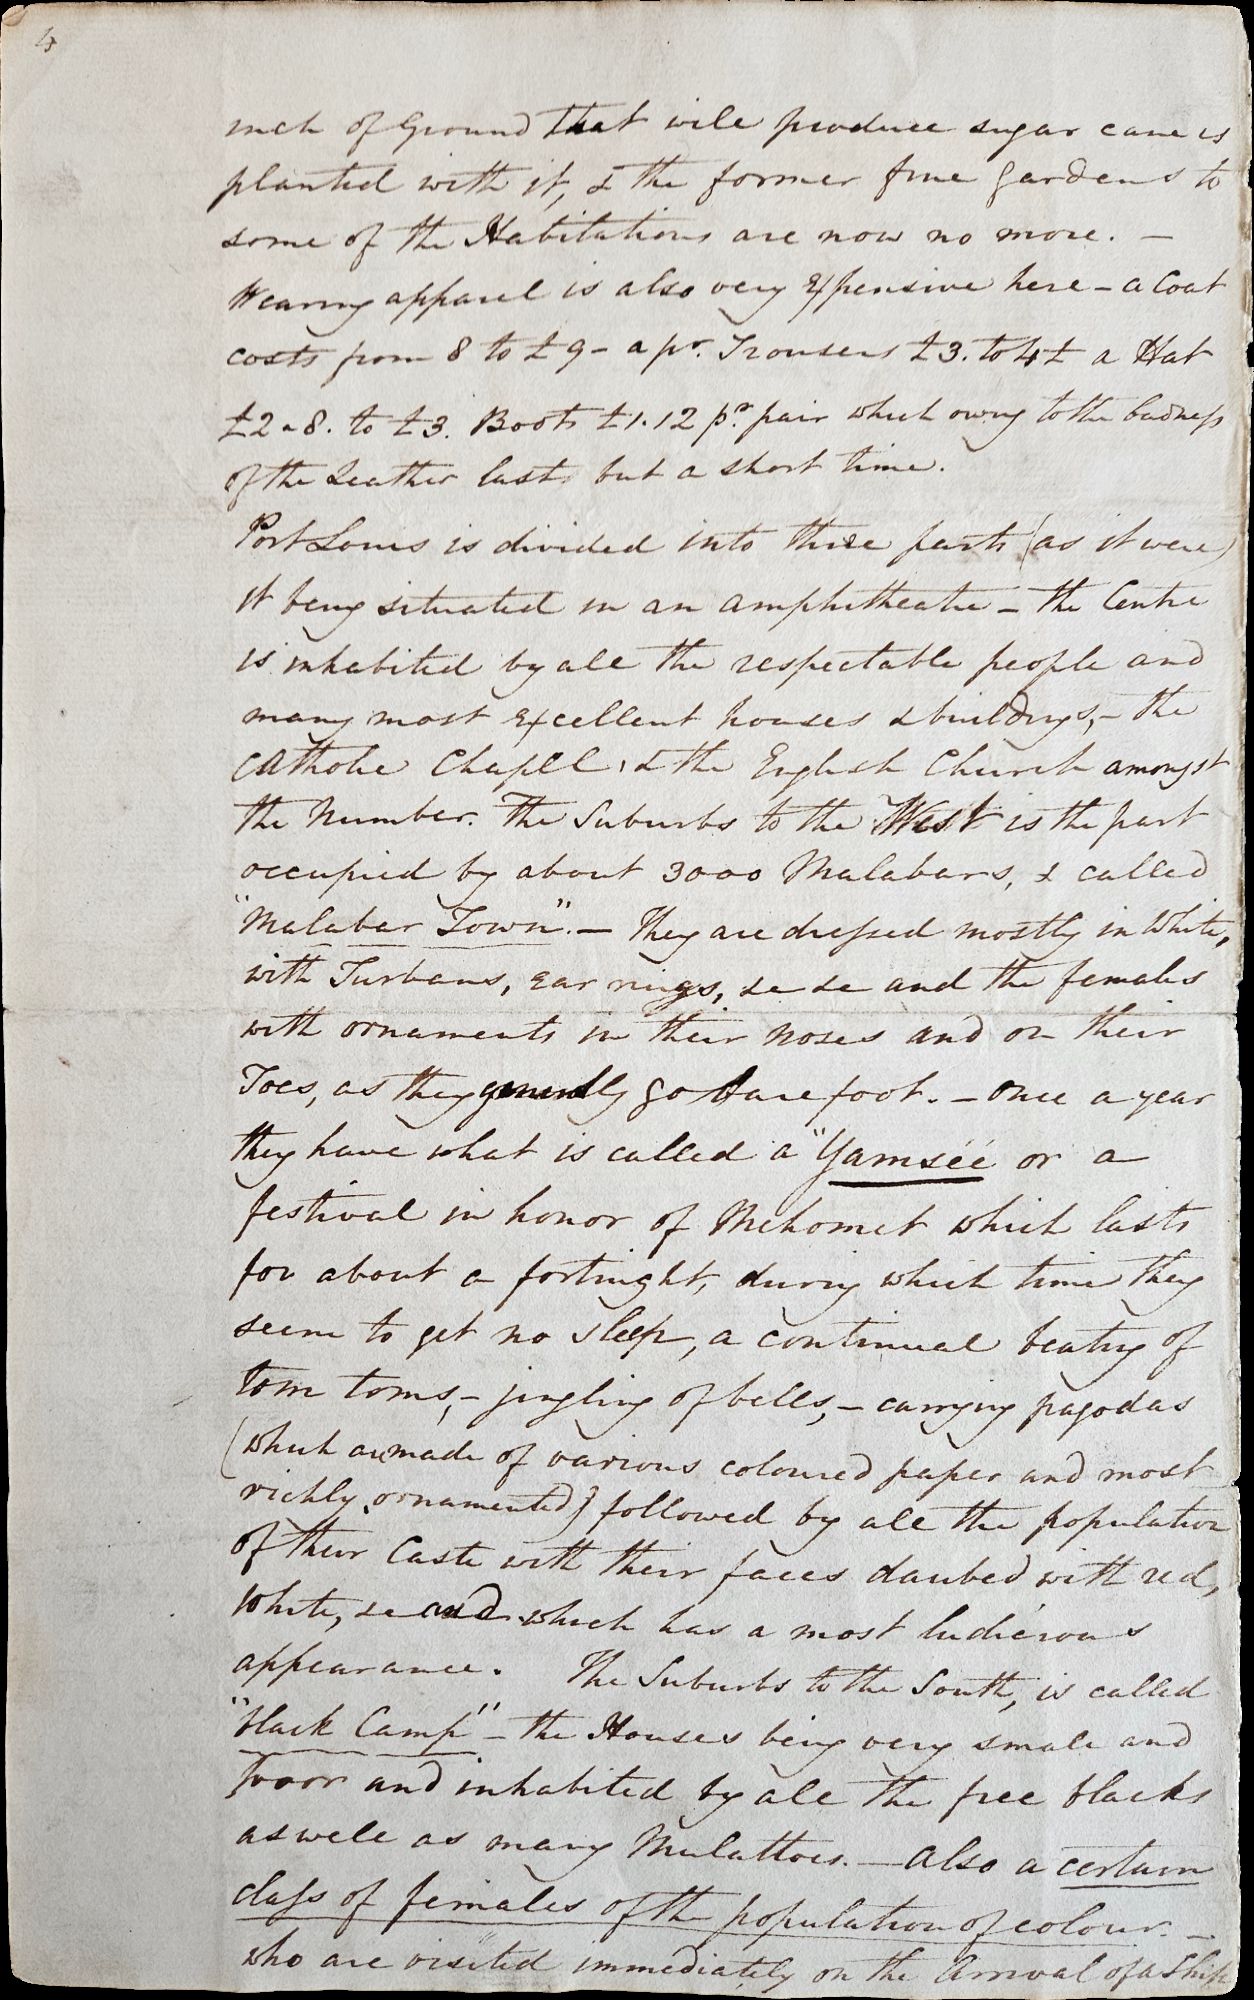 4
inch of Ground that will produce sugar cane is
planted with it, & the former fine Gardens to
some of the Habitations are now no more. —
Wearing apparel is also very Expensive here – a Coat
costs from 8 to £9 – a pr. Trousers £3. to 4£ a Hat
£2 " 8. to £3. Boots £1.12 pr. pair which owing to the badness
of the Leather lasts but a short time.
Port Louis is divided into three parts (as it were)
it being situated in an amphitheatre – the Centre
is inhabited by all the respectable people and
many most Excellent houses & buildings, – the
Catholic Chapel, & the English Church amongst
the Number. The Suburbs to the West is the part
occupied by about 3000 Malabars, & called
"Malabar Town". – They are dressed mostly in White,
with Turbans, Ear rings, &c &c and the females
with ornaments in their noses and on their
Toes, as they generally go bare foot. – Once a year
they have what is called a "Yamsèé or a
festival in honor of Mehomet which lasts
for about a fortnight, during which time they
seem to get no sleep, a continual beating of
tom toms, – jingling of bells, – carrying pagodas
(which are made of various coloured paper and most
richly ornamented) followed by all the population
of their Caste with their faces daubed with red,
White, &c and which has a most ludicrous
appearance. The Suburbs to the South, is called
"black Camp" – the Houses being very small and
poor and inhabited by all the free blacks
as well as many Mulattoes. – Also a certain
class of females of the population of colour. –
who are visited immediately on the Arrival of a Ship